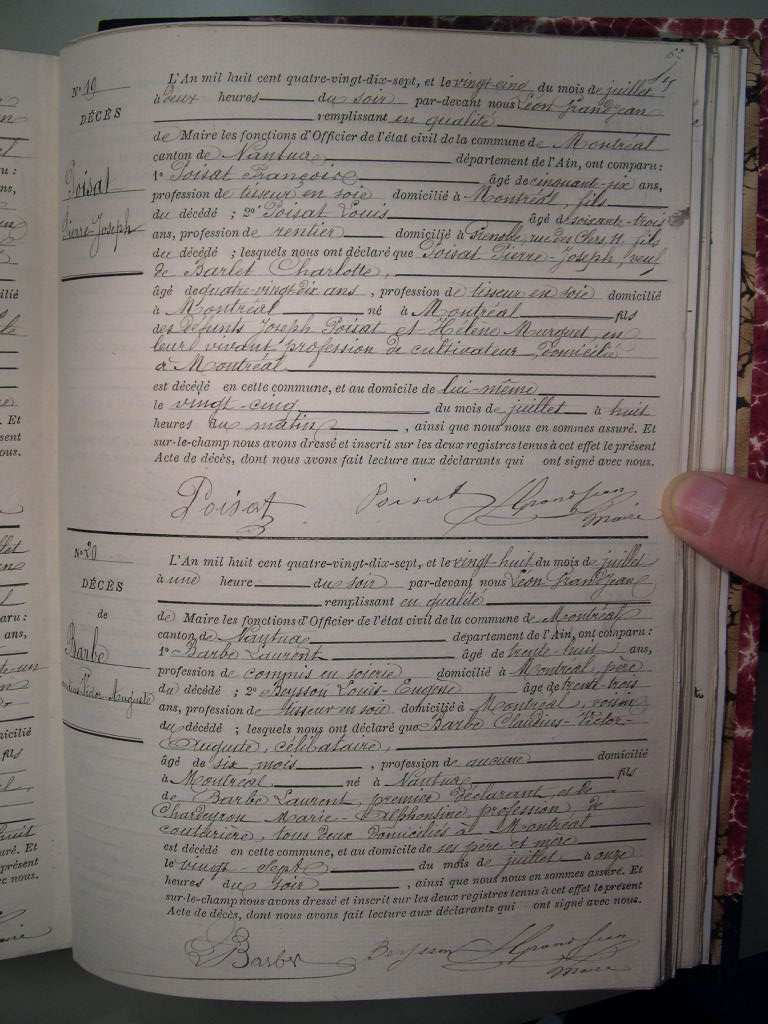 N° 19
DÉCÈS
Poisat
Pierre-Joseph
L'An mil huit cent quatre-vingt-dix-sept, et le vingt-cinq du mois de juillet
à deux heures du soir par-devant nous Léon Grandjean
remplissant en qualité
de Maire les fonctions d'Officier de l'état civil de la commune de Montréal
canton de Nantua département de l'Ain, ont comparu:
1° Poisat Françoise âgé de cinquante-six ans,
profession de tisseur en soie domicilié à Montréal, fils
du décédé ; 2° Poisat Louis âgé de soixante-trois
ans, profession de rentier domicilié à Grenoble, rue des Clers 11, fils
du décédé ; lesquels nous ont déclaré que Poisat Pierre-Joseph, veuf
de Barlet Charlotte,
âgé de quatre-vingt-dix ans, profession de tisseur en soie domicilié
à Montréal né à Montréal fils
des défunts Joseph Poisat et Hélène Murguet, en
leur vivant profession de cultivateur, domicilié
à Montréal
est décédé en cette commune, et au domicile de lui-même
le vingt-cinq du mois de juillet à huit
heures du matin, ainsi que nous nous en sommes assuré. Et
sur-le-champ nous avons dressé et inscrit sur les deux registres tenus à cet effet le présent
Acte de décès, dont nous avons fait lecture aux déclarants qui ont signé avec nous.
Poisat Poisat L Grandjean
Maire
N° 20
DÉCÈS
de
Barbe
Claudius-Victor-Auguste
L'An mil huit cent quatre-vingt-dix-sept, et le vingt-huit du mois de juillet
à une heure du soir par-devant nous Léon Grandjean
remplissant en qualité
de Maire les fonctions d'Officier de l'état civil de la commune de Montréal
canton de Nantua département de l'Ain, ont comparu:
1° Barbe Laurent âgé de trente-huit ans,
profession de commis en soierie domicilié à Montréal, père
du décédé ; 2° Beysson Louis-Eugène âgé de trente-trois
ans, profession de tisseur en soie domicilié à Montréal, voisin
du décédé ; lesquels nous ont déclaré que Barbe Claudius-Victor-
Auguste, célibataire,
âgé de six mois, profession de aucune domicilié
à Montréal né à Nantua fils
de Barbe Laurent, premier déclarant, et de
Chardeyron Marie-Alphonsine, profession de
couturière, tous deux domiciliés à Montréal
est décédé en cette commune, et au domicile de ses père et mère
le vingt-sept du mois de juillet à onze
heures du soir, ainsi que nous nous en sommes assuré. Et
sur-le-champ nous avons dressé et inscrit sur les deux registres tenus à cet effet le présent
Acte de décès, dont nous avons fait lecture aux déclarants qui ont signé avec nous.
Barbe Beysson L Grandjean
Maire